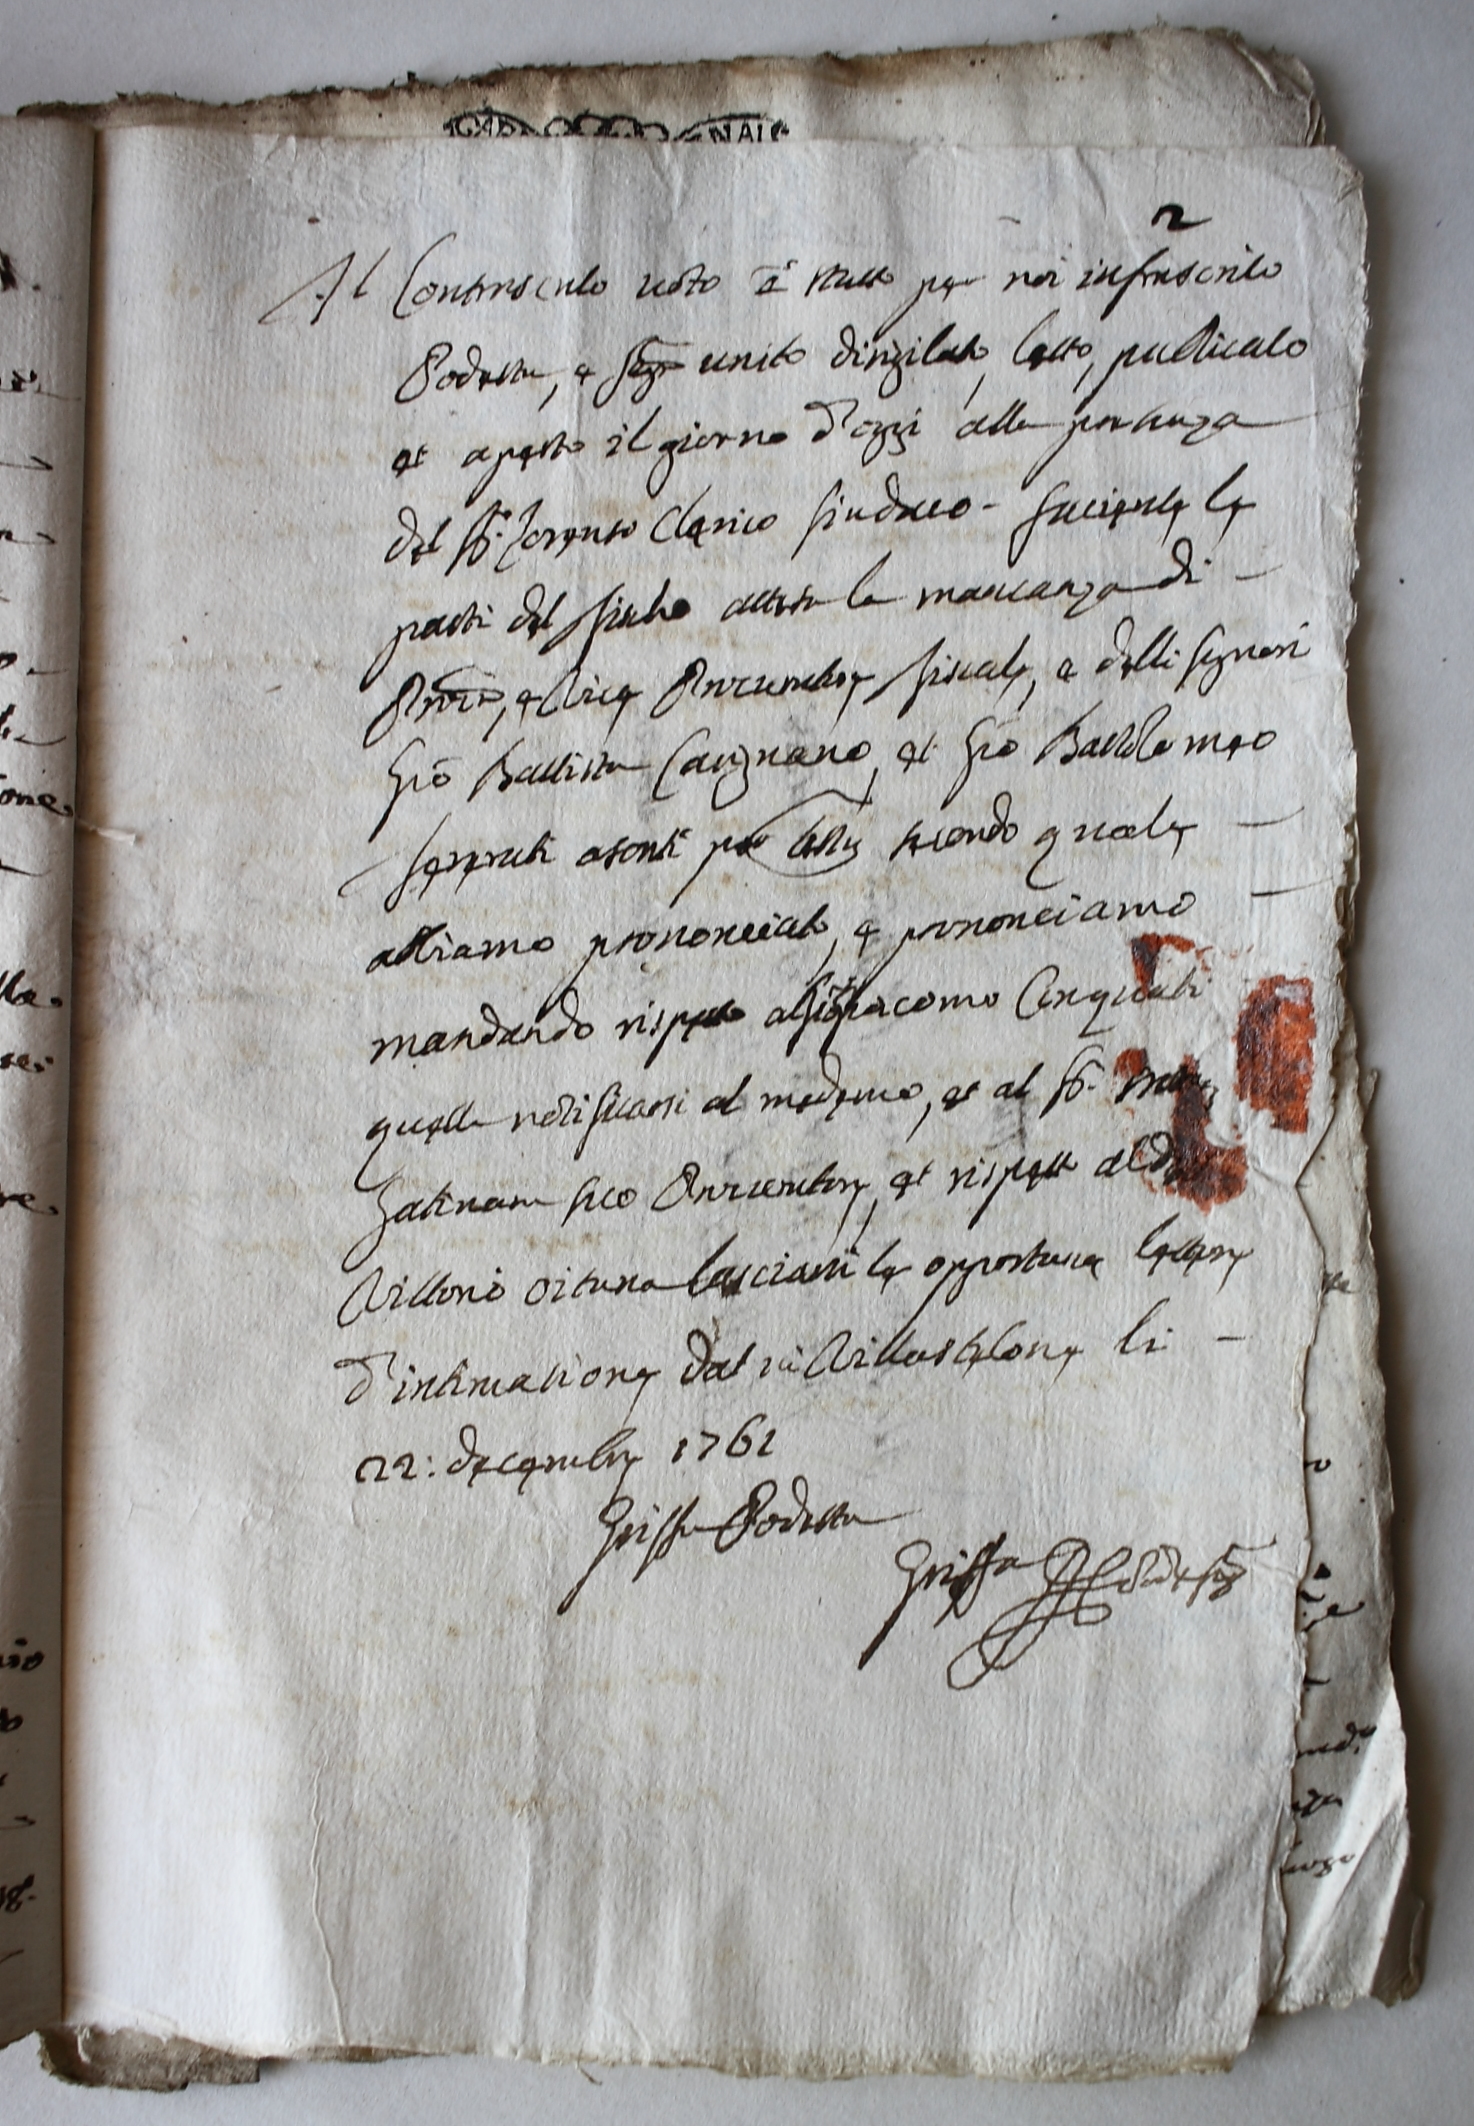 2
Al Contrascritto voto è stato per noi infrascritto
Podestà, e Segr unito disigilato, letto, publicato
et aperto il giorno d'oggi alla presenza
del Sr. Lorenzo Clerico Sindaco - faciente le
parti del fisco attesa la mancanza di -
e Vice Procuratore fiscale, e delli Signori
Gio Battista Cavignano, et Gio Battolomeo
asonti per testij secondo quale -
abbiamo prononciato, e prononciamo -
mandando rispetto al Sig Giacomo Cinquati
quella notificarsi al medemo, et al Sr.
Gatinara suo Procuratore, et rispetto al
Vittorio lasciarsi le opportune lettere
d'intimatione dat in Villastelone li -
22: decembre 1761
Griffa Podestà
Griffa